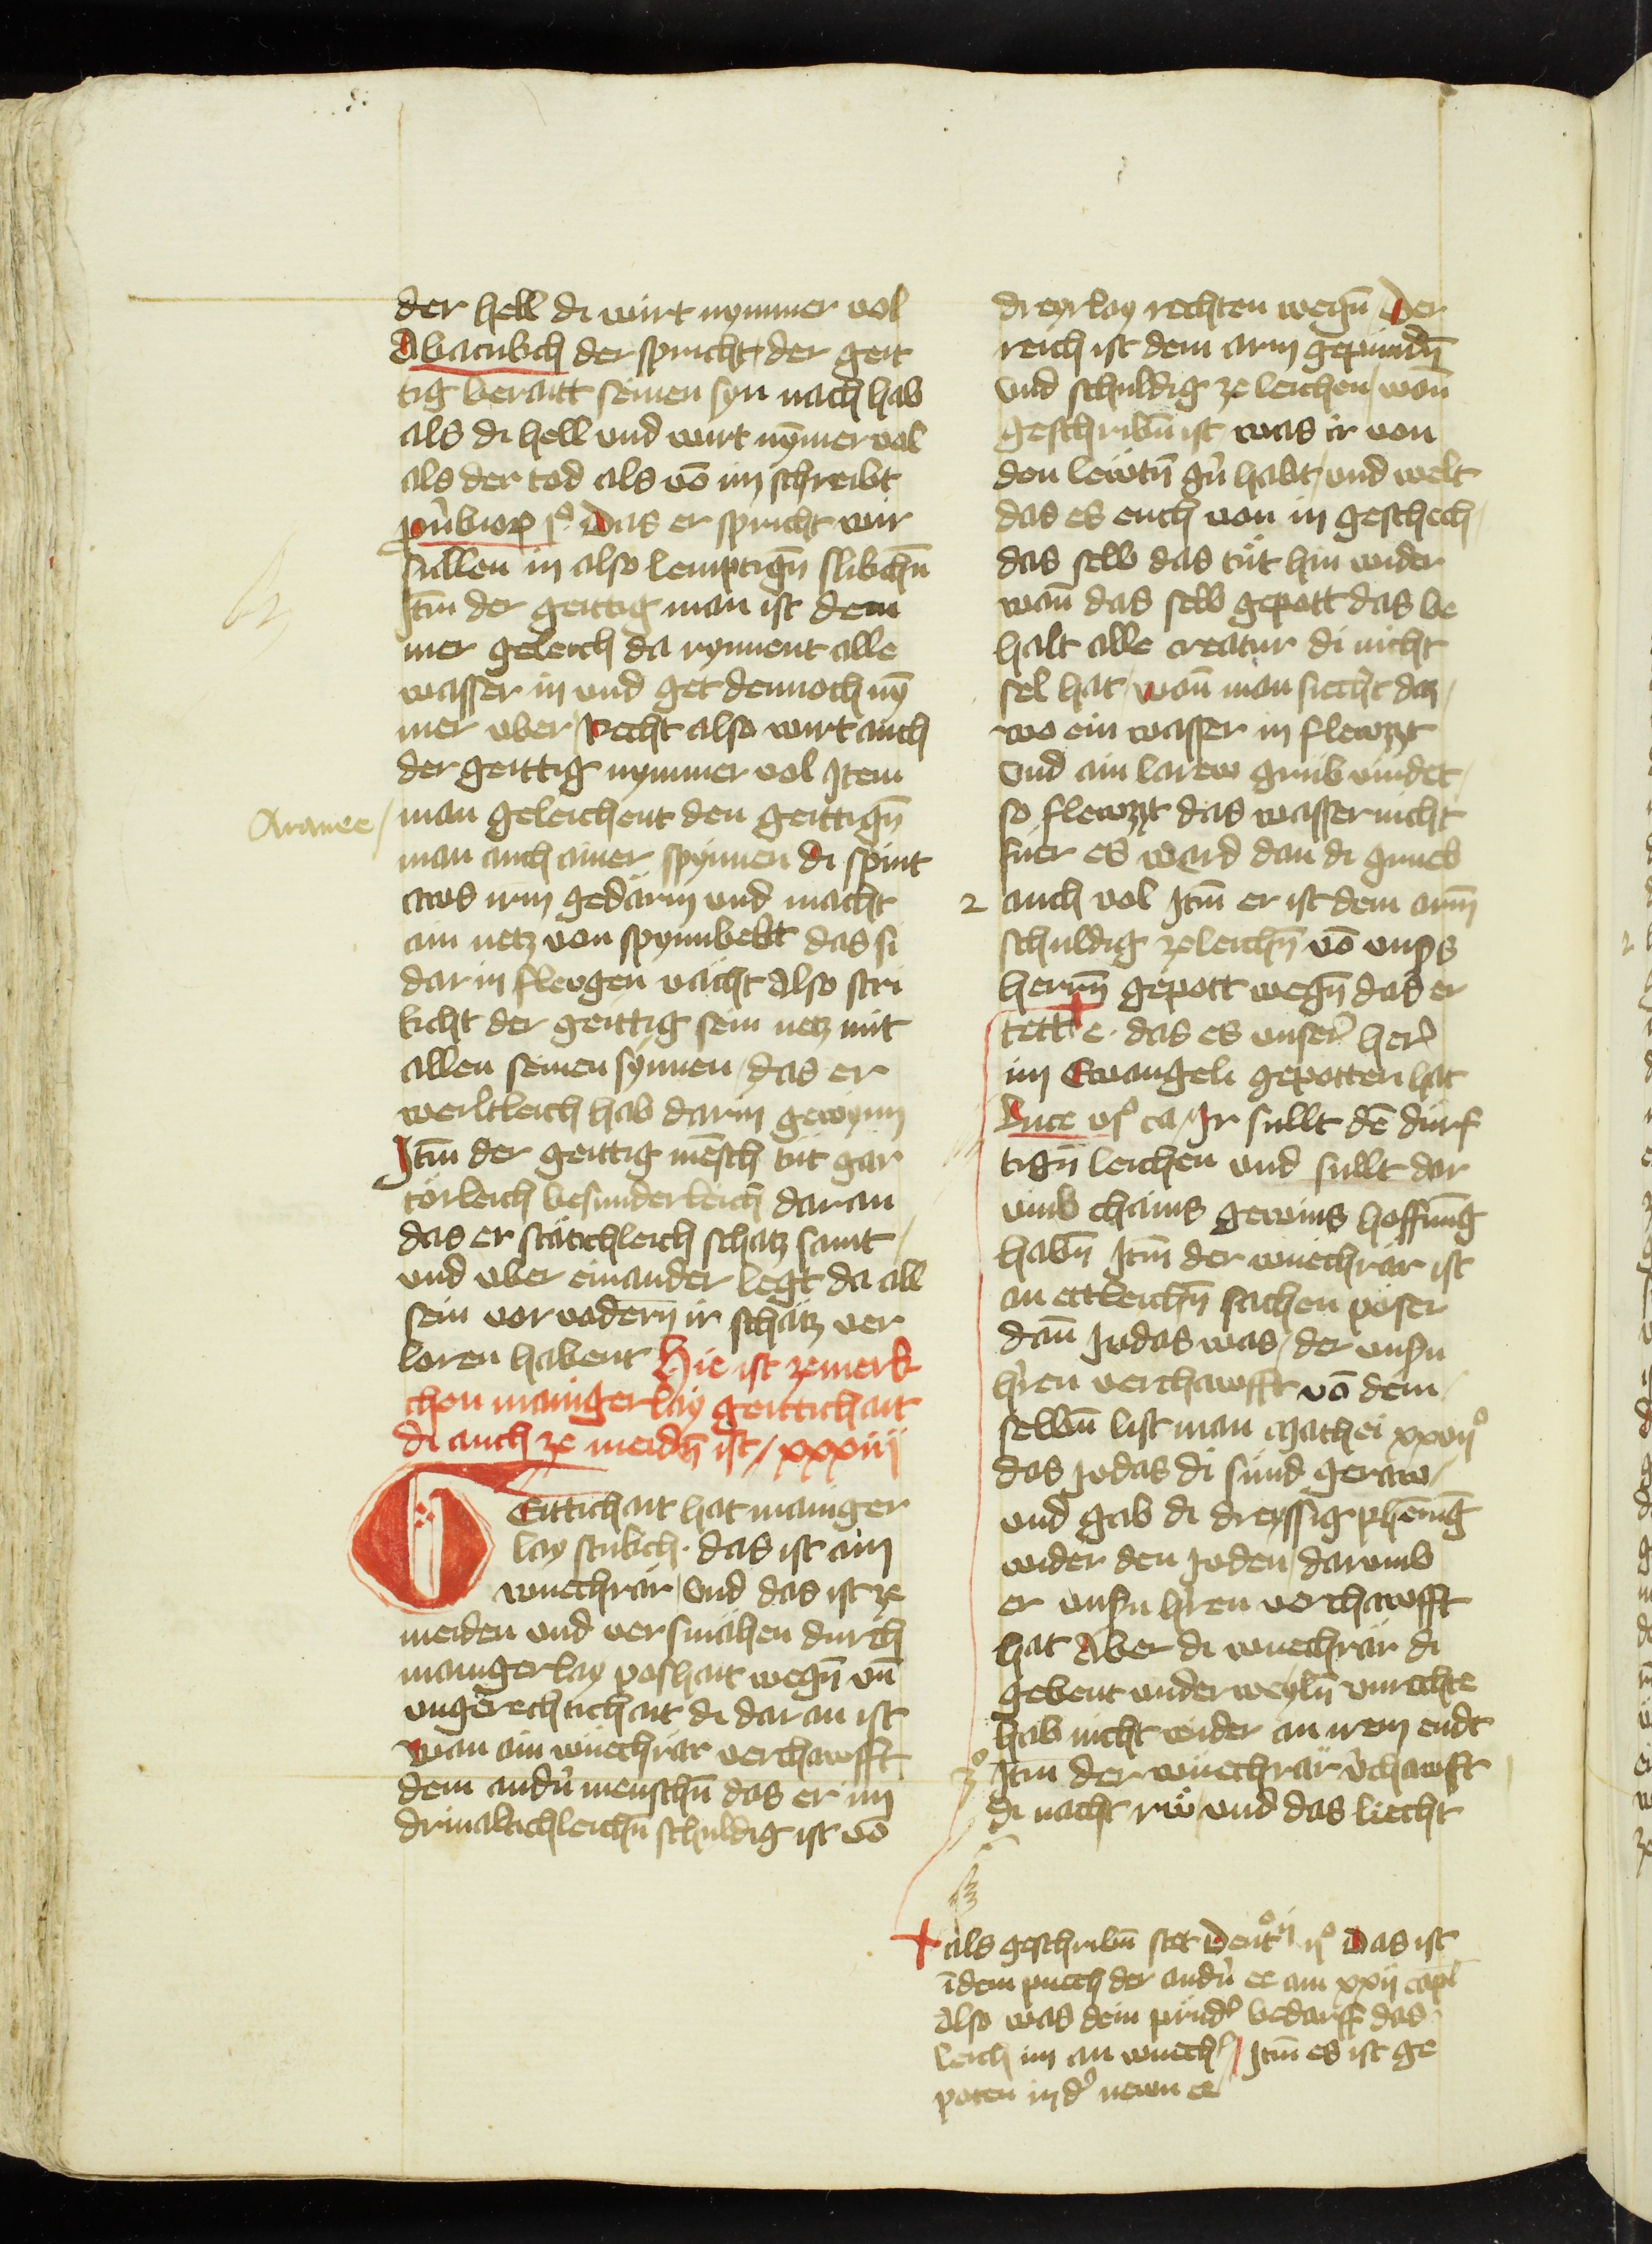 der hell di wirt nymmer vol
Abacukch der spricht der geit
tig berait seinen syn nach hab
als di hell und wirt nȳmer vol
als der tod als vō im schreibt
ꝓůbiorꝝ jº Das er spricht wir
sullen in also lemptign̄ slikchn̄
Itm̄ der geittig man ist dem
mer geleich da rynnent alle
wasser in und get dennoch nȳ
mer uber / Recht also wirt auch
der geittig nymmer vol Item
Aranee /
man geleichent den geittign̄
man auch ainer spynnen di spint
aws irm gedärm und macht
ain netz von spynnbebt das si
dar in flewgen vächt Also stri
kcht der geittig sein netz mit
allen seinen synnen / das er
werltleich hab darin gewynn
Itm̄ der geittig mēsch tůt gar
törleich besunderleich daran
das er stätichleich schatz samt /
und uber einander legt da all
sein vor vodern ir schätz ver
loren habent Hie ist zemerk
chen mainger lay geittichait
di auch ze meidn̄ ist / xxxiiij
Geittichait hat mainger
lay stukch · das ist ain
wuechrär / Und das ist ze
meiden und versmähen durch
mainger lay poshait wegn̄ un̄
ungerechtichait di dar an ist
Wan ain wuechrär verchawfft
dem andn̄ menschn̄ das er im
drivaltichleichn̄ schuldig ist vō
dreyrlay rechten wegn̄ / Der
reich ist dem arm gepundn̄
Und schuldig ze leichen / wan̄
geschribn̄ ist / was ir von
den lewtn̄ gn̄ habt / und welt
das es euch von in geschech /
das selb das tůt hin wider
wan̄ das selb gepott das be
halt alle creatur di nicht
sel hat / Wan̄ man siecht daz /
wo ein wasser in flewzzt
Und ain larew grüb vindet /
so flewzzt das wasser nicht
füer es werd dan di grueb
2 auch vol Itm̄ er ist dem arm̄
schuldig zeleichn̄ vō unsꝭs
herrn̄ gepott wegn̄ das er
tett + e · das es unser her
im Ewangeli gepotten hat
Luce vjº ca / Ir sullt dē dürf
tign̄ leichen und sullt dar
umb chains gewins hoffnūg
habn̄ Itm̄ der wuechrär ist
an ettleichn̄ sachen pöser
dan̄ Judas was / der unsn̄
hren verchawfft vō dem /
selbn̄ list man Mathei xxvijº
das Judas di sünd geraw /
und gab di dreyssig phēnig
wider den Juden / darumb
er unsn̄ hren verchawfft
hat Aber di wuechrär di
gebent underweyln̄ unrechte
hab nicht wider an irem endt
3º Itm̄ der wuechrär v̓chawft
di nacht rw̄ und das liecht
+ als geschribn̄ stet Deutºij jº Das ist
īdem puech der andn̄ ee am xxij capl
Also was dein prüdˀ bedarff das
leich im an wuechˀ / Itm̄ es ist ge
poten in dˀ newn ee